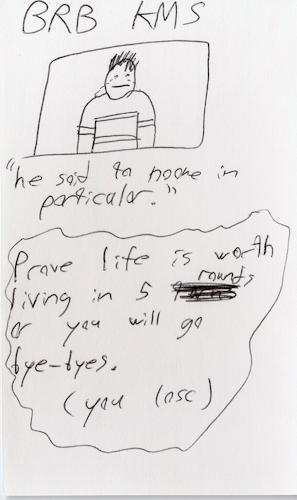 BRB KMS
"he said to noone in
particular."
Prove life is worth
living in 5 rounds
or you will go
bye-byes.
(you lose)